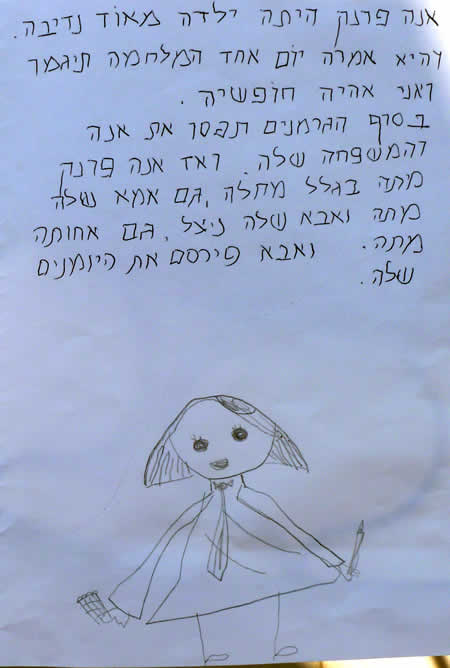 אנה פרנק היתה ילדה מאוד נדיבה.
והיא אמרה יום אחד המלחמה תיגמר
ואני אהיה חופשיה.
בסוף הגרמנים תפסו את אנה
והמשפחה שלה. ואז אנה פרנק
מתה בגלל מחלה, גם אמא שלה
מתה ואבא שלה ניצל, גם אחותה
מתה. ואבא פירסם את היומנים
שלה.